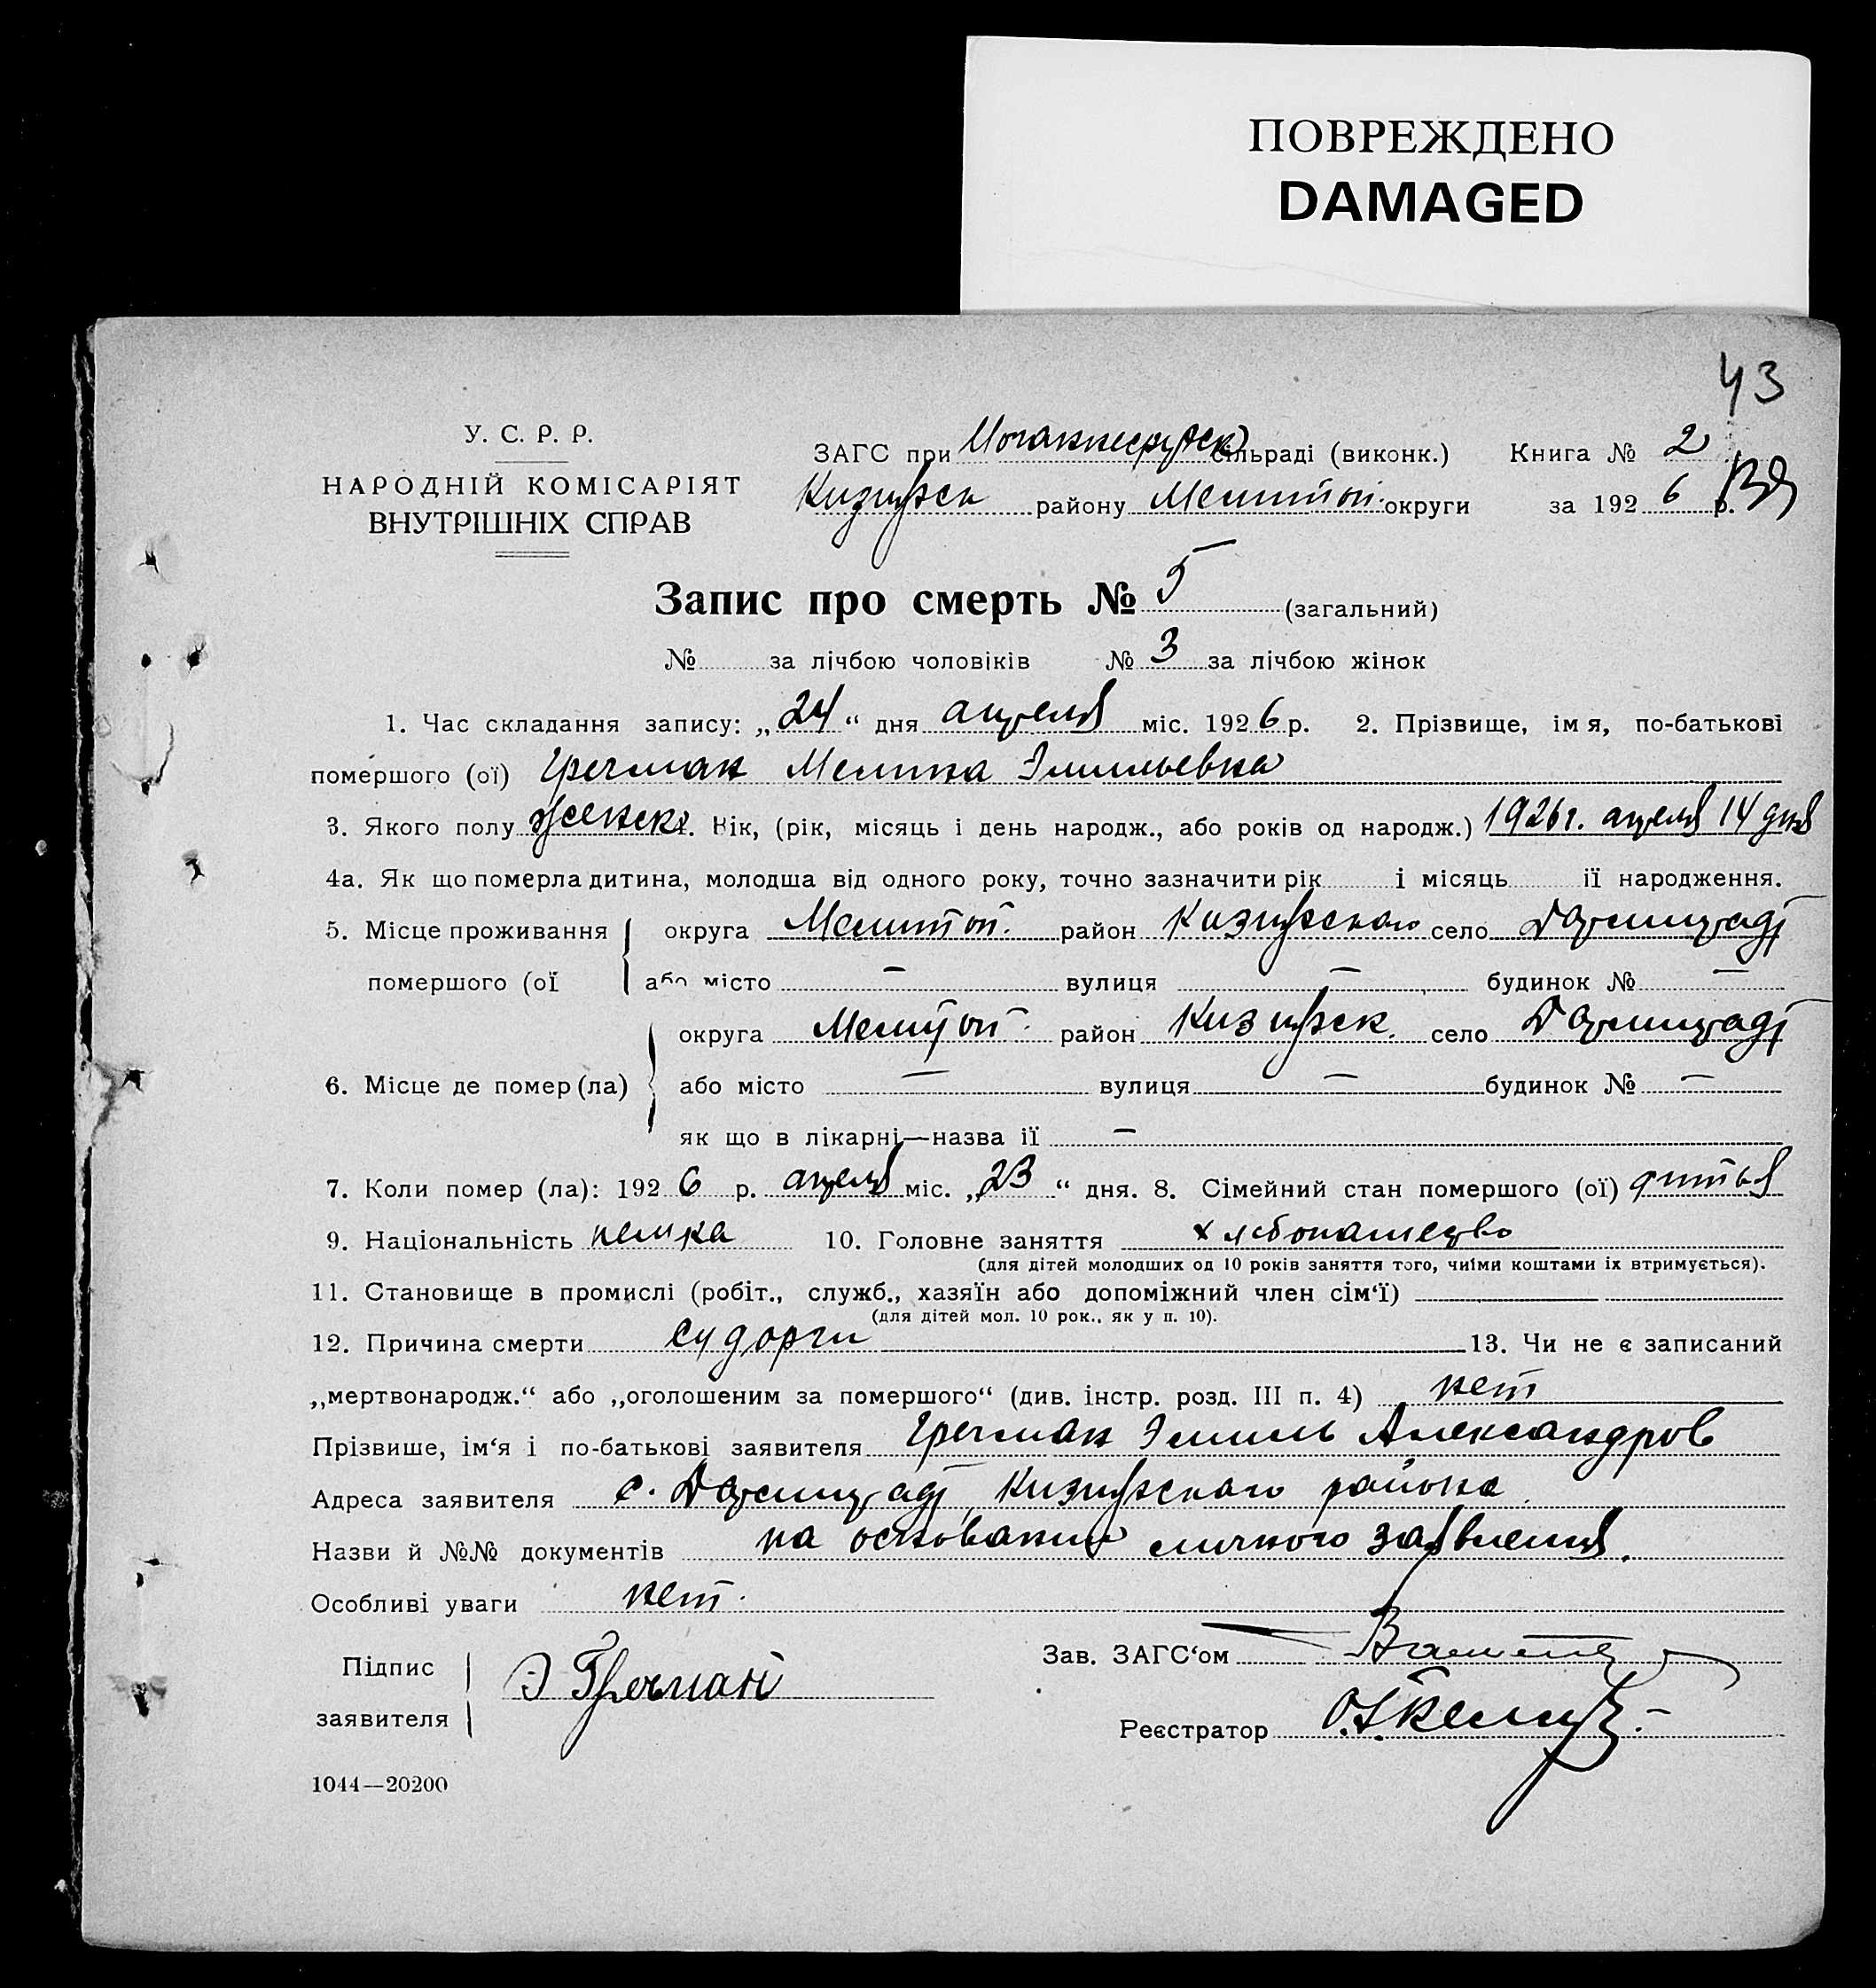 ПОВРЕЖДЕНО
DAMAGED
43
У. С. Р. Р.
НАРОДНІЙ КОМІСАРІЯТ
ВНУТРІШНІХ СПРАВ
ЗАГС при сільраді (виконк.) Книга № 2
району Мелитоп. округи за 1926 р.
Запис про смерть № 5 (загальний)
№ за лічбою чоловіків № 3 за лічбою жінок
1. Час складання запису: „24“ дня апреля міс. 1926 р. 2. Прізвище, імя, по-батькові
помершого (ої) Гречман Мелита Эмильевна
3. Якого полу женск. Вік, (рік, місяць і день народж., або років од народж.) 1926 г. апреля 14 дня
4а. Як що померла дитина, молодша від одного року, точно зазначити рік і місяць її народження.
5. Місце проживання округа Мелитоп. район село
помершого (ої або місто — вулиця — будинок № —
округа Мелитоп. район село
6. Місце де помер (ла) або місто — вулиця — будинок № —
як що в лікарні—назва її —
7. Коли помер (ла): 1926 р. апреля міс. „23“ дня. 8. Сімейний стан помершого (ої) дитья
9. Національність немка 10. Головне заняття хлебопашество
(для дітей молодших од 10 років заняття того, чиїми коштами іх втримується).
11. Становище в промислі (робіт., служб., хазяїн або допоміжний член сім‘ї) —
(для дітей мол. 10 рок., як у п. 10).
12. Причина смерти судорги 13. Чи не є записаний
„мертвонародж.“ або „оголошеним за помершого“ (див. інстр. розд. III п. 4) нет
Прізвише, ім‘я і по-батькові заявителя Гречман Эмиль Александров
Адреса заявителя с. района.
Назви й №№ документів на основании личного заявления.
Особливі уваги нет.
Підпис
заявителя Э Гречман
Зав. ЗАГС‘ом
Реєстратор
1044—20200